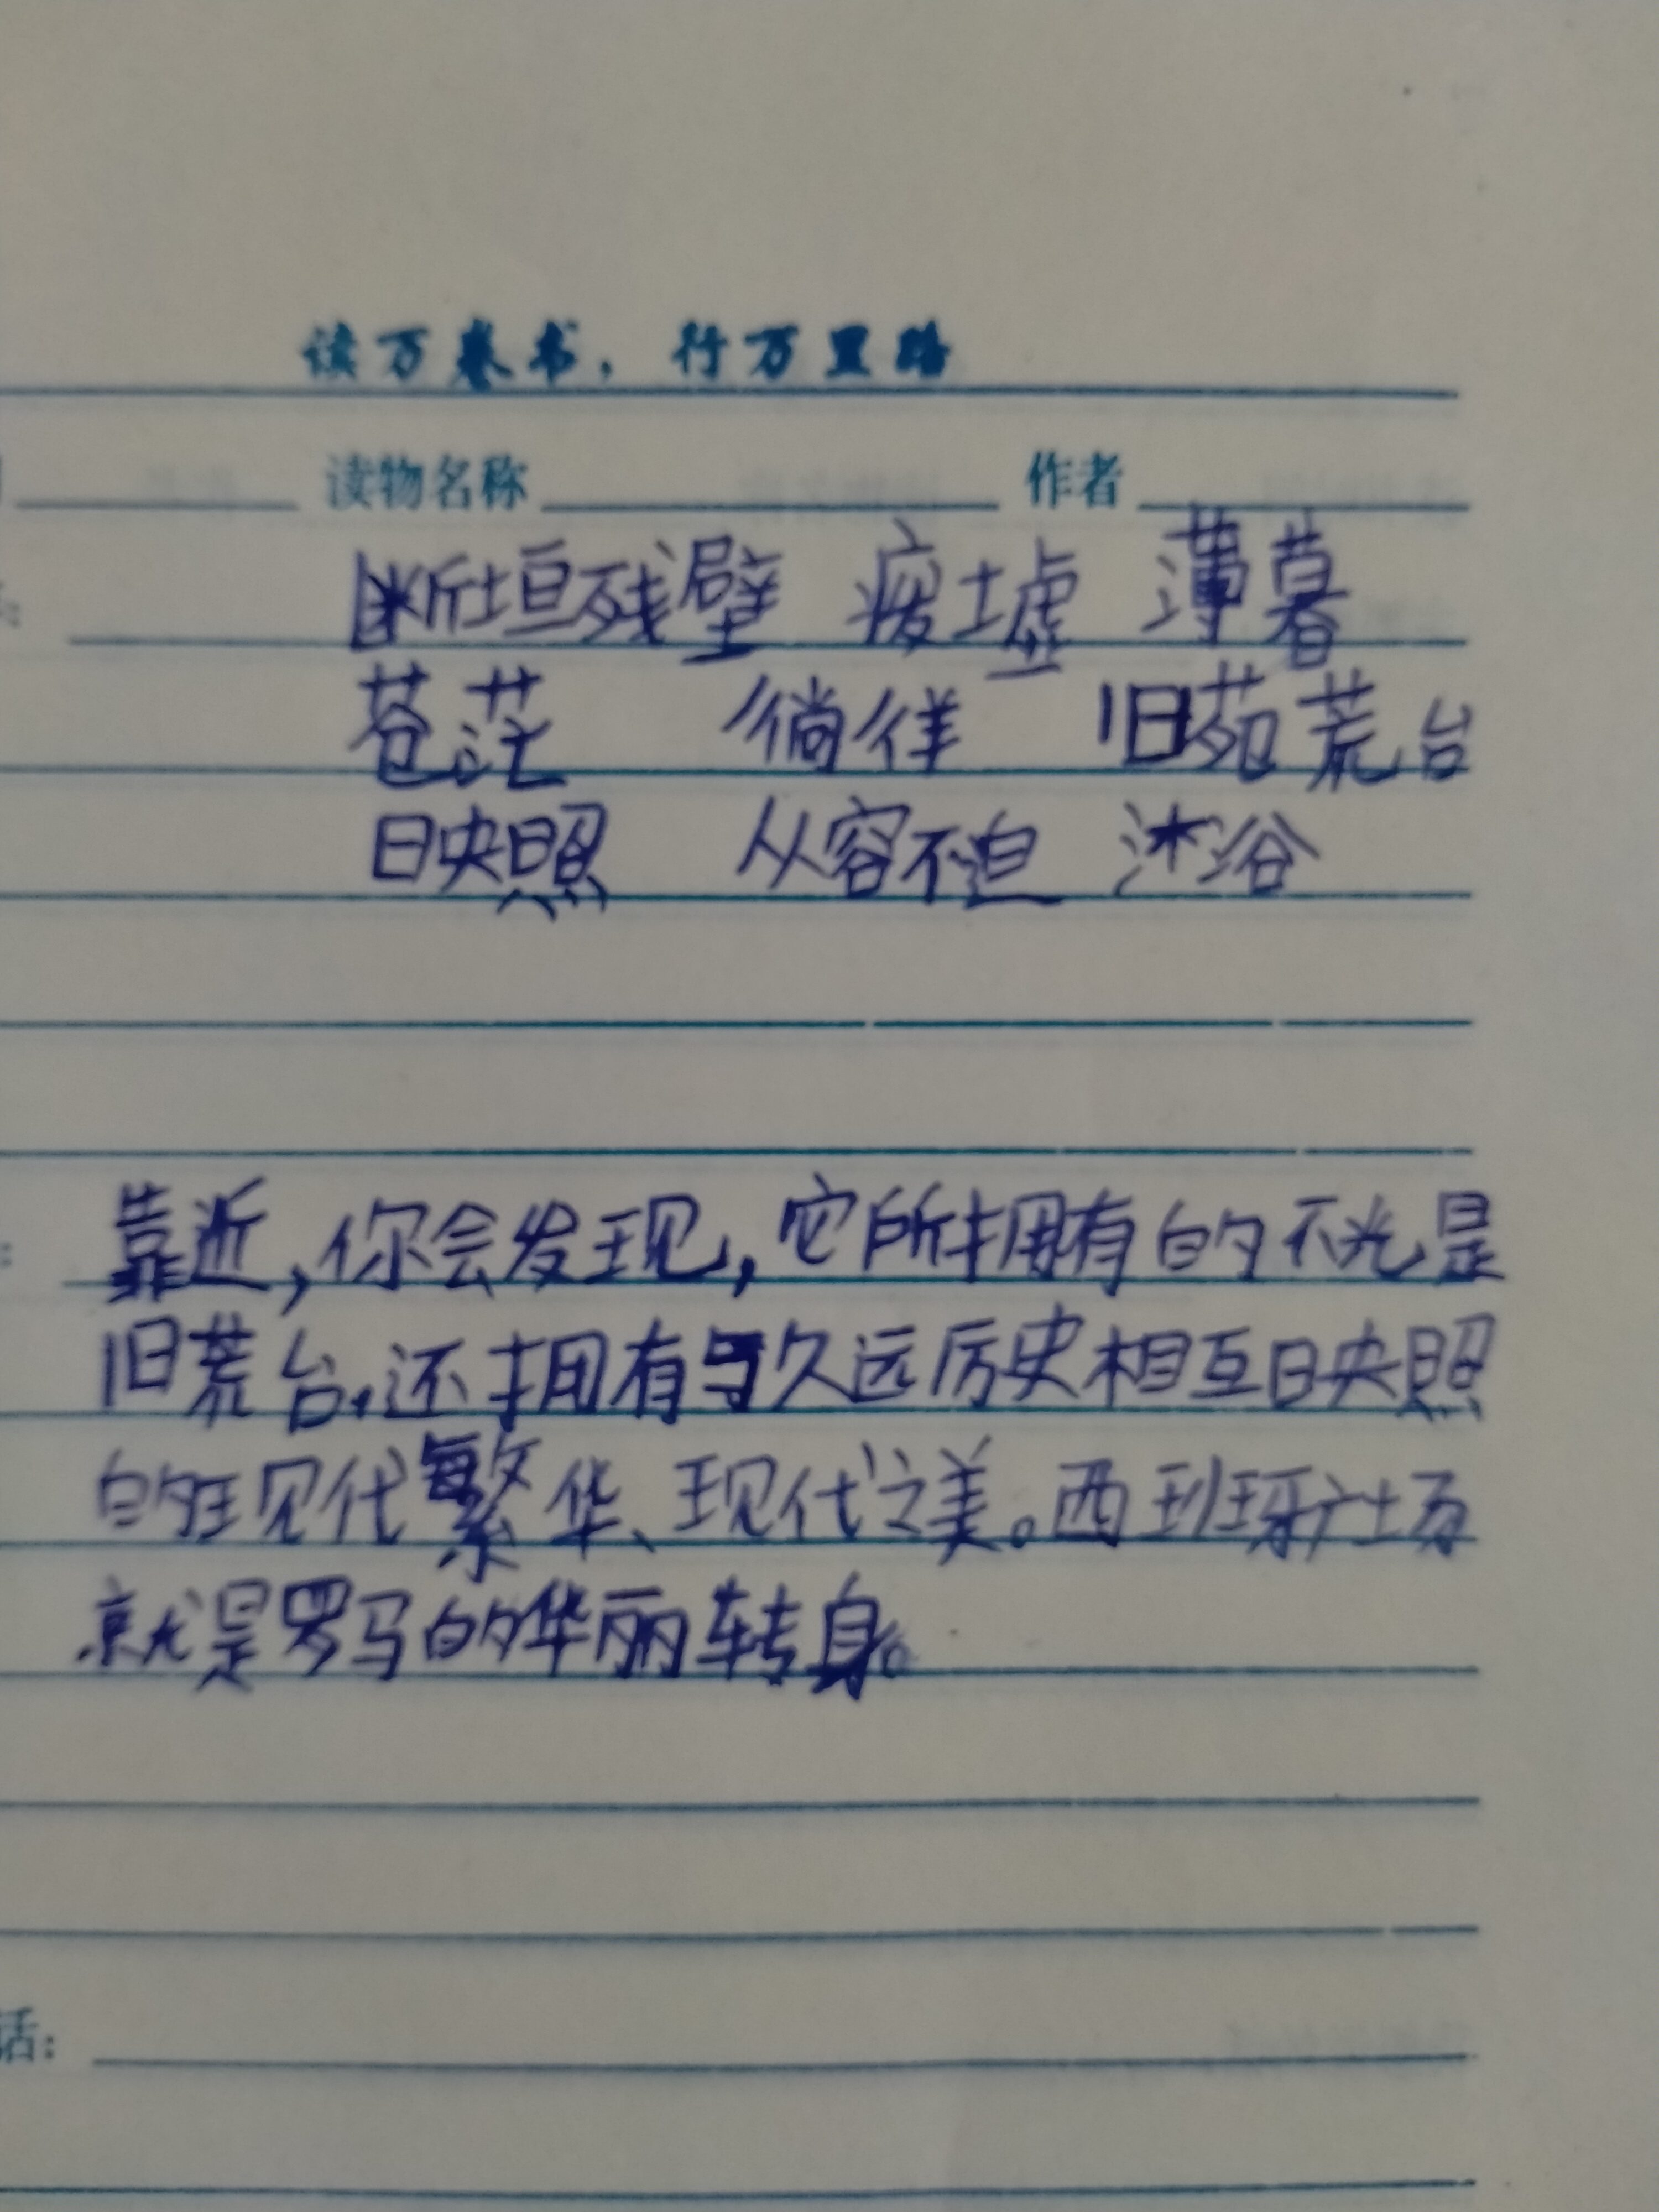 读万卷书，行万里路
读物名称 作者
断垣残壁 废墟 薄暮
苍茫 徜徉 旧苑荒台
映照 从容不迫 沐浴
靠近，你会发现，它所拥有的不光是
旧荒台，还拥有与久远历史相互映照
的现代繁华、现代之美。西班牙广场
就是罗马的华丽转身。
话：